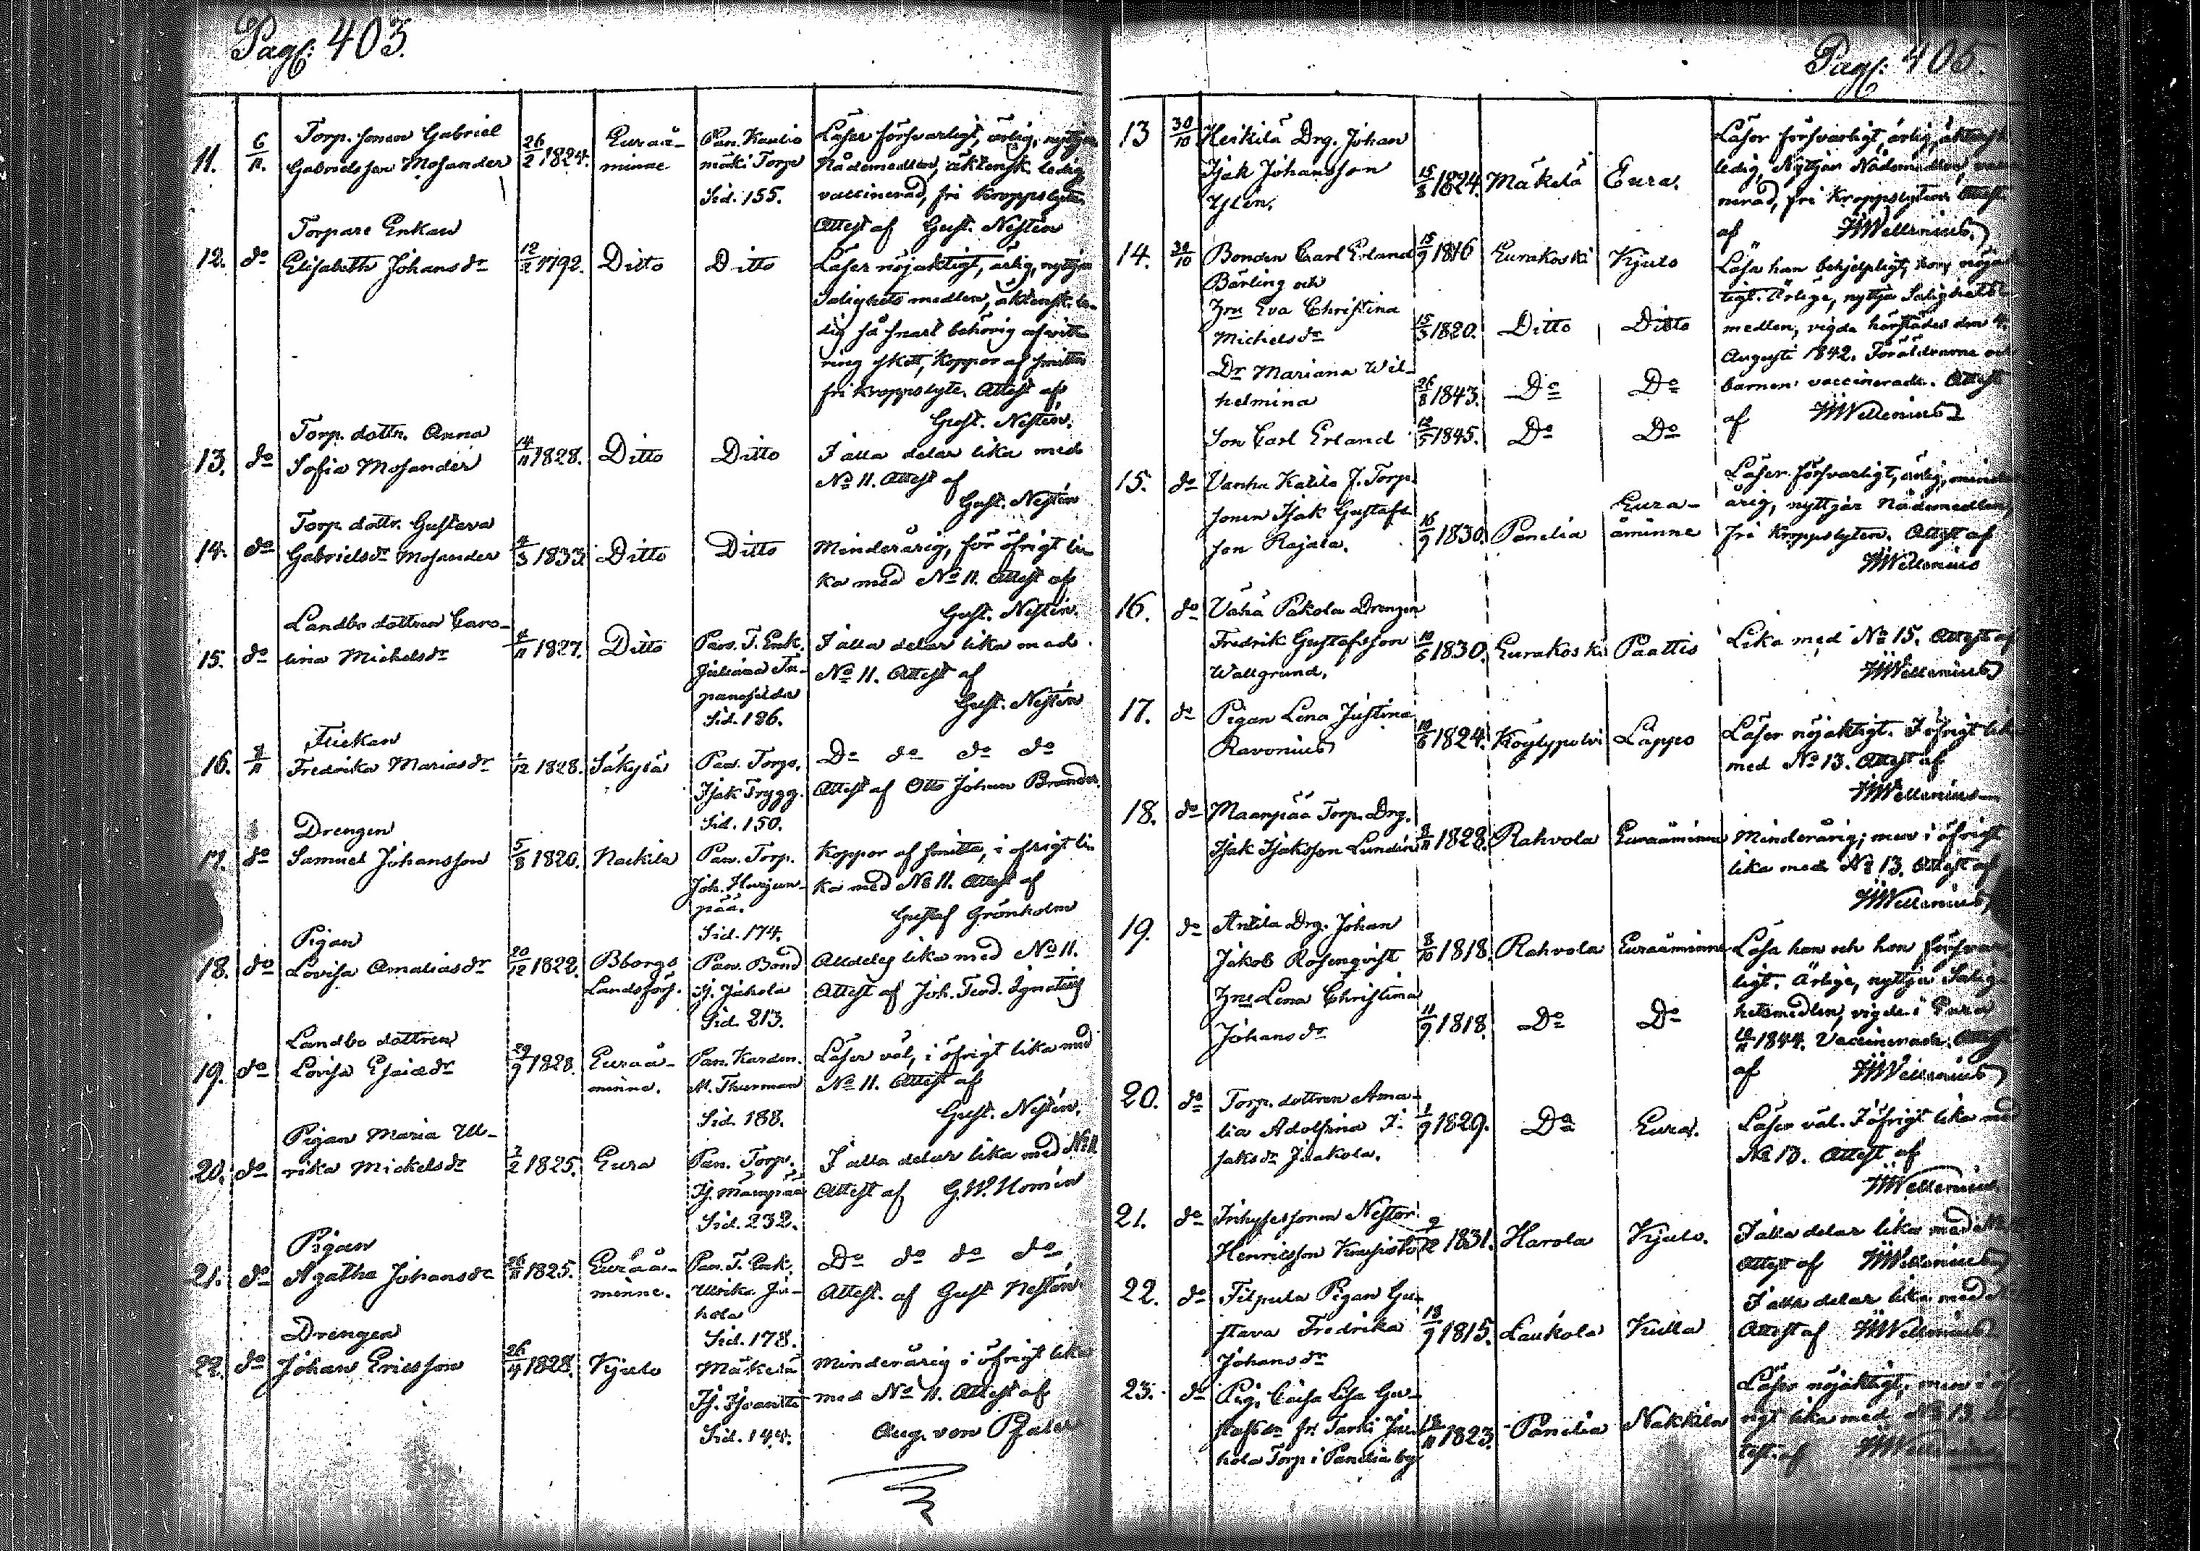 Pag: 403.
11. 6/11. Torp. sonen Gabriel
Gabrielsson Mosander 26/2 1824. Euraå-
minne Pan. Kaulio
mäki Torp
Sid. 155. Läser försvarligt, ärlig, nyttjar
Nådemedlen, äktensk. ledig
vaccinerad, fri kroppslyten
Attest af Gust. Nestén
12. do Torpare Enkan
Elisabeth Johansdr 1792. Ditto Ditto Läser nöjaktigt, ärlig, nyttjar
Salighets medlen, äktensk. le-
dig så snart behörig afvitt-
ring skett, koppor af smitta
fri kroppslyte. Attest af
Gust. Nestén.
13. do Torp. dottr. Anna
Sofia Mosander 14/11 1828. Ditto Ditto I alla delar lika med
No 11. Attest af
Gust. Nestén
14. do Torp. dottr. Gustava
Gabrielsdr Mosander 1833. Ditto Ditto Minderårig, för öfrigt li-
ka med No 11. Attest af
Gust. Nestén.
15. do Landbo dottren Caro-
lina Michelsdr 1827. Ditto Pan. T. Enk.
Juliana
Sid. 186. I alla delar lika med
No 11. Attest af
Gust. Nestén
16. Flickan
Fredrika Mariasdr 1/12 1828. Säkylä Pan. Torp.
Isak Trygg.
Sid. 150. Do do do do
Attest af Otto Johan Brander
17. do Drengen
Samuel Johansson 5/8 1820. Nackila Pan. Torp.
Joh. Harjun-
pää.
Sid. 174. Koppor af smitta, i öfrigt li-
ka med No 11. Attest af
Gustaf Grönholm
18. do Pigan
Lovisa Amaliasdr 20/12 1822. Bborgs
Landsförs. Pan. Bond
Jakola
Sid. 213. Alldeles lika med No 11.
Attest af Joh. Ferd. Ignatius
19. do Landbo dottren
Lovisa Esaiædr 29/9 1828. Euraå-
minne. Pan. Karden.
M. Thurman
Sid. 188. Läser väl, i öfrigt lika med
No 11. Attest af
Gust. Nestén.
20. do Pigan Maria Ul-
rika Michelsdr 1825. Eura Pan. Torp.
Sid. 232. I alla delar lika med No 11
Attest af G.W. Homén
21. do Pigan
Agatha Johansdr 1825. Euraå-
minne. Pan. T. Enk.
Ulrika Ja-
kola
Sid. 178. Do do do do
Attest. af Gust Nestén
22. do Drengen
Johan Ericsson 26/4 1828. Kjulo Mäkelä
Sid. 144. Minderårig i öfrigt lika
med No 11. Attest af
Aug. von Pfaler
Pag: 405.
13 30/10 Heikilä Drg. Johan
Isak Johansson
Ylen. 1824. Mäkelä Eura. Läser försvarligt, ärlig,
ledig, Nyttjar Nådemedlen,
fri Kroppslyten. Attest
af Wellenius.
14. 30/10 Bonden Carl Erland
Bärling och 15/9 1816 Eurakoski Kjulo Läsa han behjelpligt, hon nöjak-
tigt. Ärlige, nyttja Salighets-
Hru Eva Christina
Michelsdr 15/3 1820. Ditto Ditto medlen, vigde härstädes den 4.
Augusti 1842. Föräldrarne och
Dr Mariana Wil-
helmina 26/8 1843. Do Do barnen vaccinerade. Attest
Son Carl Erland 1845. Do Do af Wellenius
15. do Vanha Katila J. Torp
sonen Isak Gustafs-
son Rajala. 16/9 1830. Panelia Eura-
åminne Läser försvarligt, ärlig, minder-
årig, nyttjar Nådemedlen,
fri Kroppslyten. Attest af
Wellenius
16. do Vähä Pakola Drengen
Fredrik Gustafsson
Wallgrund. 1830. Eurakoski Paattis Lika med No 15. Attest af
Wellenius
17. do Pigan Lena Justina
Ravonius 1824. Köylypolvi Lappo Läser nöjaktigt. I öfrigt lika
med No 13. Attest af
Wellenius
18. do Maanpää Torp. Drg.
Isak Isaksson Lundén 1828. Rahvola Euraåminne Minderårig; men i öfrigt
lika med No 13. Attest af
Wellenius
19. do Antila Drg. Johan
Jakob Rosenqvist 8/10 1818. Rahvola Euraåminne Läsa han och hon försvar-
ligt. Ärlige, nyttja Salig-
Hru Lena Christina
Johansdr 11/9 1818. Do Do hetsmedlen, vigde i Eura
1844. Vaccinerade. Attest
af Wellenius
20. do Torp. dottren Ama-
lia Adolfina I-
saksdr Jaakola. 1/9 1829. Do Eura. Läser väl. I öfrigt lika med
No 13. Attest af
Wellenius
21. do Inhysessonen Nestor
Henricsson 1831. Harola Kjulo. I alla delar lika med
Attest af Wellenius
22. do Filpula Pigan Gu-
stava Fredrika
Johansdr 18/9 1815. Laukola Kulla I alla delar lika med
Attest af Wellenius
23. do Pig. Caisa Lisa Gu-
stafsdr fr. Tarki Jaa-
kola Torp i Panelia by 1823. Panelia Nakkila Läser nöjaktigt, men i öf-
rigt lika med No 13 At-
test. af Wellenius